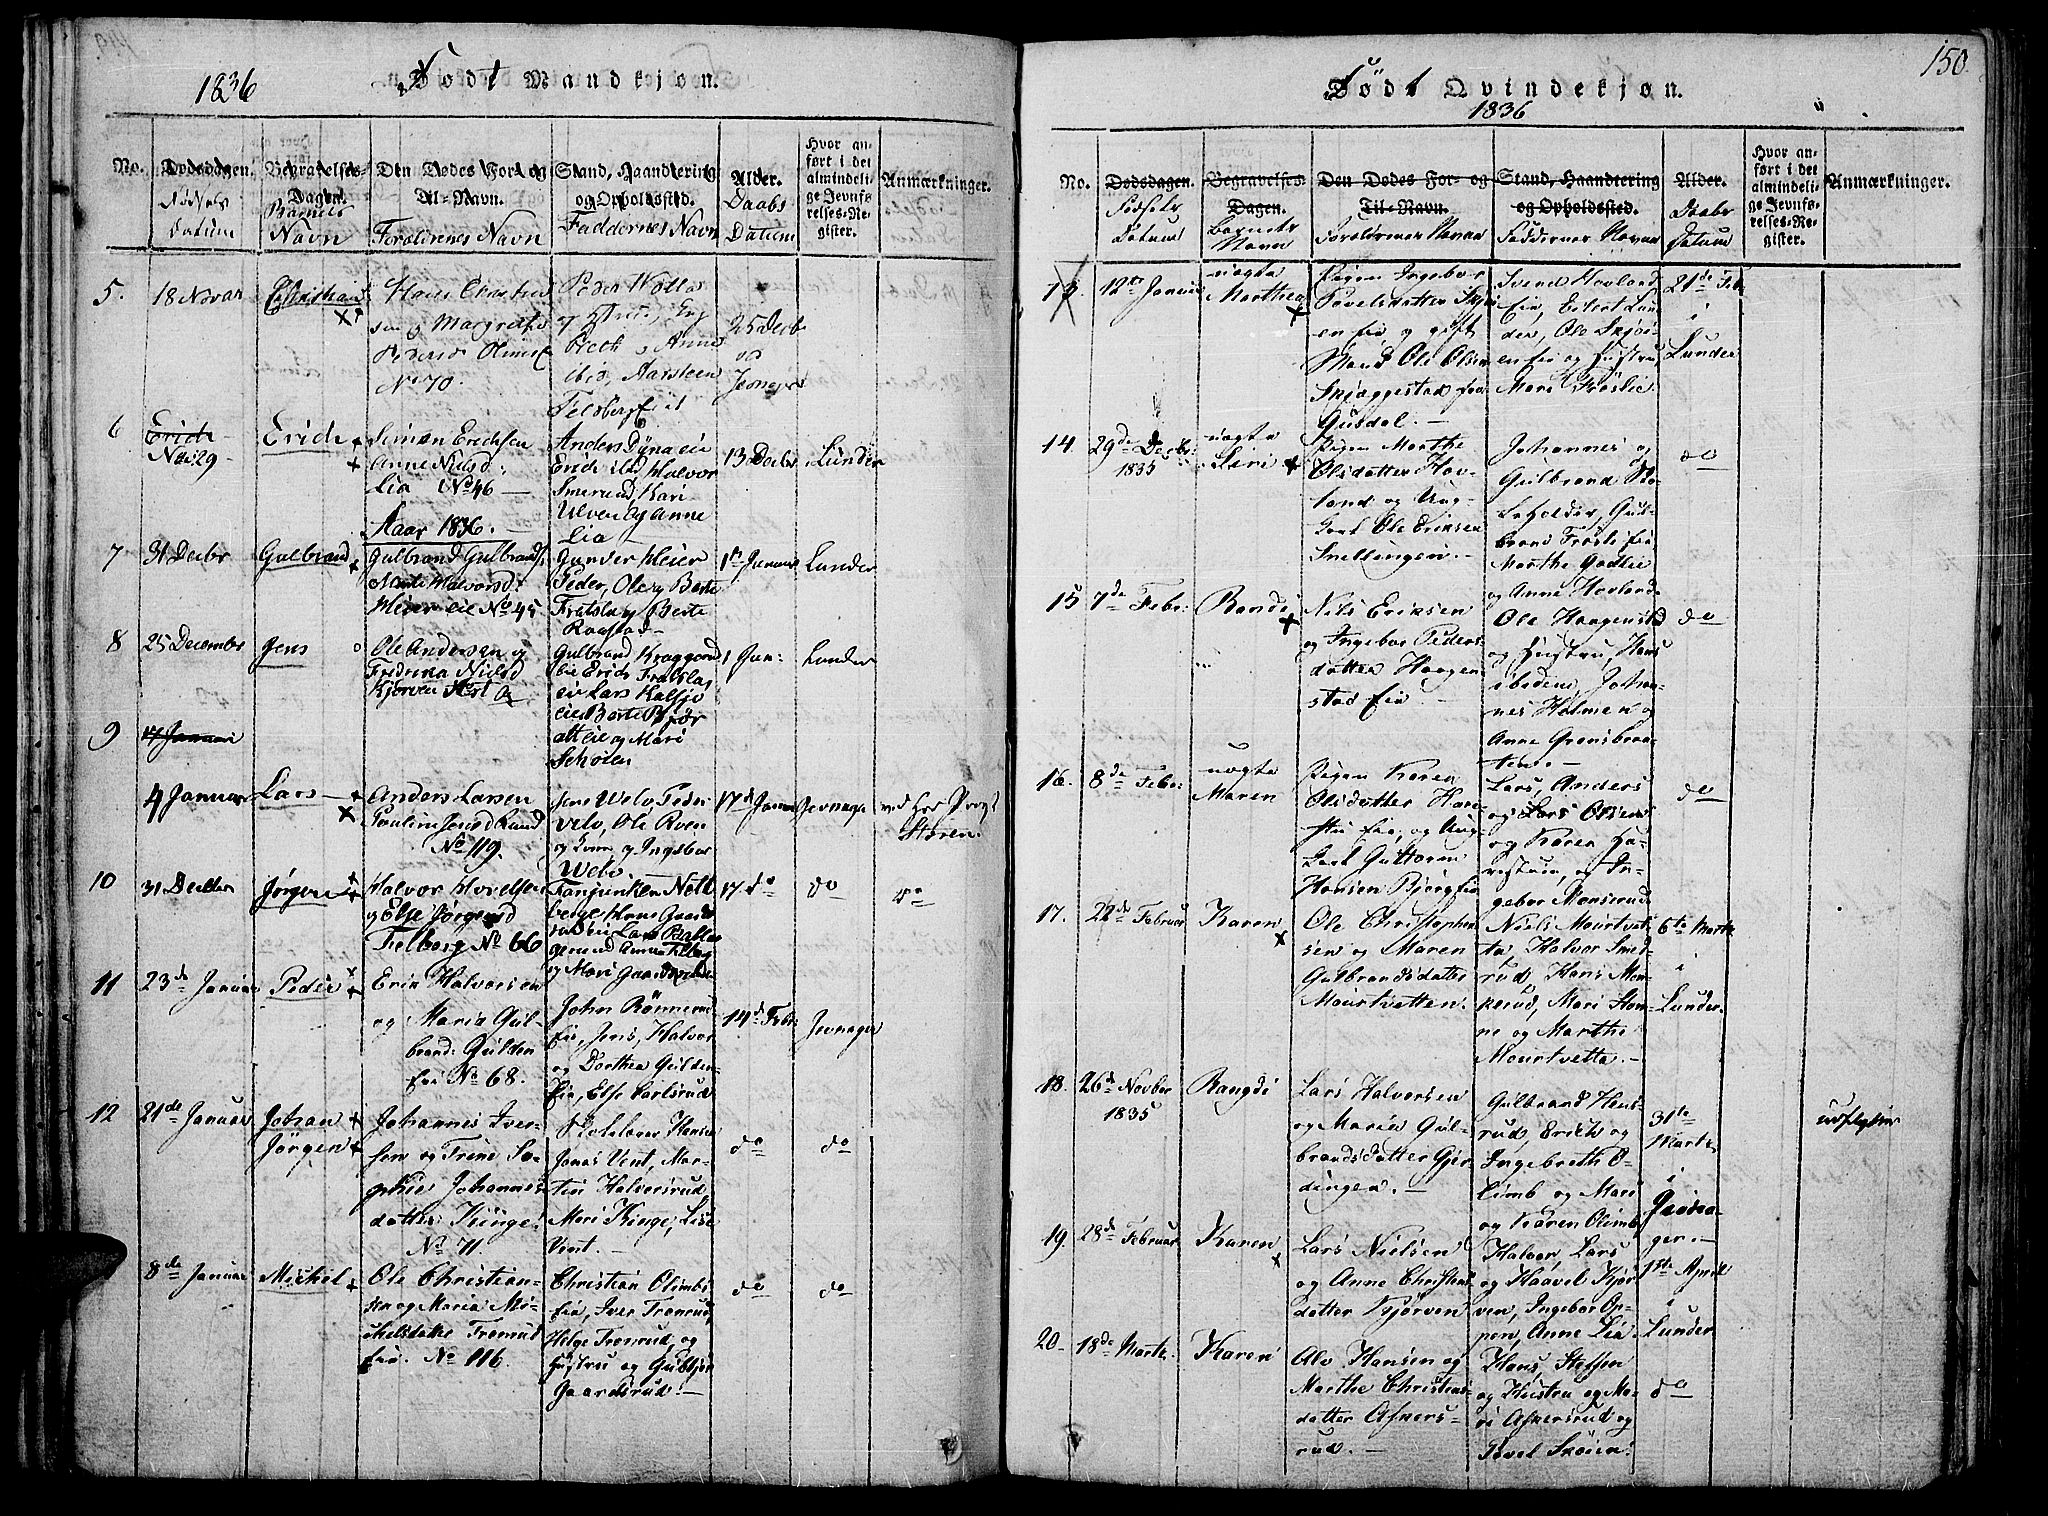 1836
Født Mandkjøn.
No.
Dødsdagen.
Fødsels
Datum
Begravelses-
Dagen.
Barnets
Navn
Den Dødes For- og
Til-Navn.
Forældrenes Navn
Stand, Haandtering
og Opholdssted.
Faddernes Navn
Alder.
Daabs
Datum
Hvor an-
ført i det
almindeli-
ge Jevnfø-
relses-Re-
gister.
Anmærkninger.
5.
18 Novbr
Christian
Hans Christen
sen og Margrethe
Pedersd
No 70.
og
Anne
25 Decbr
Jevnager
6
Erich
Nov 29
Erich
Simen Erichsen
Anne Nielsd:
Lia No 46
Anders Dynaeie
Erich ibid Halvor
Smerud, Kari
Ulven og Anne
Lia
13 Decbr
Lunder
Aaar 1836.
7
31 Decbr
Gulbrand
Gulbrand Gulbrands
Marte Halvorsd
Meier eie No 45
Gunder Meier
Peder, Ole og Berte
Fratsla og Berte
1st Januar
Lunder
8
25 December
Jens
Ole Andersen og
Fredrika Nielsd
Kjørven
Gulbrand
eie Erich Fratsla
eie Lars
eie Berte Bjør
eie og Mari
1 Jan:
Lunder
9
17 Januar
4 Januar
Lars
Anders Larsen
Pauline Jensd Lund
No 119.
Jens Welo, Peder
Velo, Ole Roen
og Kone og Ingebor
Welo
17d Januar
Jevnager
10
31 Decbr
Jørgen
Halvor
og Else Jørgensd
Felberg No 66
og Mari
17 do
do
do
11
23de Januar
Peder
Erik Halvorsen
og Maria Gul-
brand: Gulden
eie No 68.
John Rønnerud
Eie, Jens, Halvor
og Dorthea Gulden
Eie, Else Carlsrud
14d Febr
Jevnager
12
21de Januar
Johan
Jørgen
Johannes Iver-
sen og Trine So-
phie Johannes
datter Kinge
No 71.
Hansen
Jonas Vent, Mar-
tin Halvorsrud,
Mari Kinge, Lise
Vent.
do
do
8de Januar
Michel
Ole Christian-
sen og Maria Mi-
chelsdatter Tronrud
Eie. No 116.
Christian Olimb-
eie, Iver Tronrud,
Helge Tronrud, og
Hustru og
Gaardsrud.
do
do
150.
Født Qvindekjøn.
1836
No.
Dødsdagen.
Fødsels
Datum
Begravelses-
Dagen.
Barnets
Navn
Den Dødes For- og
Til-Navn.
Forældrenes Navn
Stand, Haandtering
og Opholdssted.
Faddernes Navn
Alder.
Daabs
Datum
Hvor an-
ført i det
almindeli-
ge Jevnfø-
relses-Re-
gister.
Anmærkninger.
13.
12te Januar
uægte
Marthea
Pigen Ingebor
Povelsdatter
en Eie og gift
Mand Ole Olsen
Skjæggestad fra
Gusdal.
Svend Hovland
Eie, Eilert Lun-
der, Ole Skjøi-
en Eie og Hustru,
Mari Frøslie
21de Feb
i
Lunder
14
29de Decbr:
1835
uægte
Siri
Pigen Marthe
Olsdatter Hov-
land og Ung-
karl Ole Eriksen
Snellingen.
Johannes og
Gulbrand
Gul-
brand Frøsli Eie
Marthe
og Anne Hovland
do
15
7de Febr:
Randi
Nils Eriksen
og Ingebor Peders-
datter Haagen
stad Eie
Ole Haagenstd
og Hustru, Hans
ibidem, Johan-
nes Holmen og
Anne Grønsbraa-
ten.
do
16.
8de Febr:
uægte
Maren
Pigen Karen
Olsdatter Hare-
stu Eie, og Ung-
karl Guttorm
Hansen Bjerg Eie
Lars, Anders
og Lars Olsen
og Karen Ha-
restuen, og In-
gebor Monserud
do
17.
22de Februar
Karen
Ole Christophers
sen og Maren
Gulbrandsdatter
Mourtvetten.
Niels Mourtvet-
ta, Halvor Sme-
rud, Hans Mon-
kerud, Mari Hom-
ne og Marthe
Mourtvetta.
6te Marts
i
Lunder.
18.
26de Novber
1835
Rangdi
Lars Halvorsen
og Marie Gul-
brandsdatter Gjer-
dingen.
Gulbrand Hens-
rud, Erich og
Ingebreth O-
limb og Mari
og Karen Olimb
31te
Marts
i
Jevna-
ger.
udflyttet
19.
28de Februar
Karen
Lars Nielsen
og Anne Christens-
datter Kjørven
Halvor, Lars
og Haavel Kjør-
ven, Ingebor Op-
pen, Anne Lia
1ste April
i
Lunder
20.
18de Marts.
Karen
Alv Hansen og
Marthe Christens-
datter Asners-
rud.
Hans, Steffen
og Hustru og Ma-
ri Asnersrud og
Povel Skøien.
do